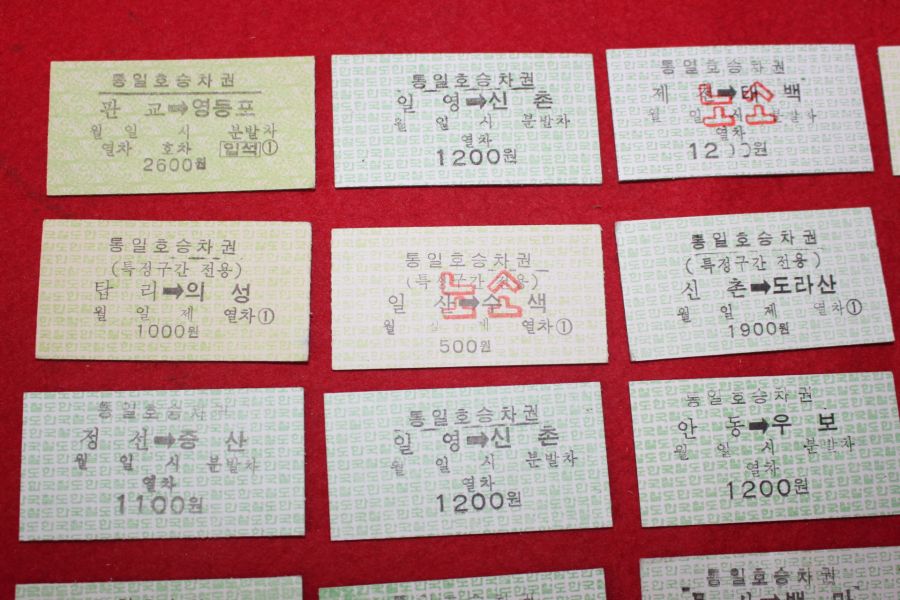 통일호승차권
판 교➡영등포
월 일 시 분발차
열차 호차 입석①
2600원
통일호승차권
일 영➡신 촌
월 일 시 분발차
열차
1200원
통일호승차권
제 천➡태 백
노소
월 일 시 분발차
열차
통일호승차권
(특정구간 전용)
탑 리➡의 성
월 일 제 열차①
1000원
통일호승차권
(특정구간 전용)
노소
일 산➡수 색
월 일 제 열차①
500원
통일호승차권
(특정구간 전용)
신 촌➡도라산
월 일 제 열차①
1900원
통일호승차권
정 선➡증 산
월 일 시 분발차
열차
1100원
통일호승차권
일 영➡신 촌
월 일 시 분발차
열차
1200원
통일호승차권
안 동➡우 보
월 일 시 분발차
열차
1200원
통일호승차권